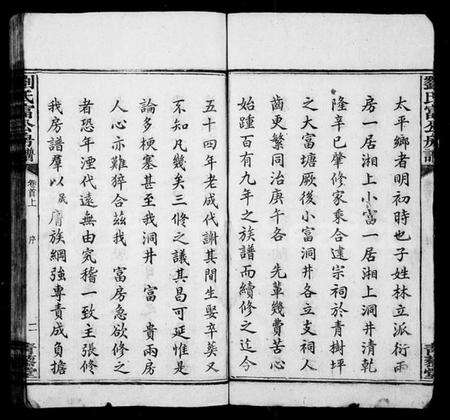 太平鄉者明初時也子姓林立派衍兩
房一居湘上小富一居湘上洞井清乾
隆辛巳肇修家乘合建宗祠於青樹坪
之大富塘厥後小富洞井各立支祠人
齒更繁同治庚午各 先輩幾費苦心
始踵百有九年之族譜而續修之迄今
五十四年老成代謝其間生娶卒葬又
不知凡幾矣三修之議其曷可延惟是
論多梗塞甚至我洞井 富 貴兩房
人心亦難猝合茲我 富房急欲修之
者恐年湮代遠無由究稽一致主張修
我房譜羣以 族綱強專責成負擔
劉氏富公房譜
卷首上
序
二
青藜堂